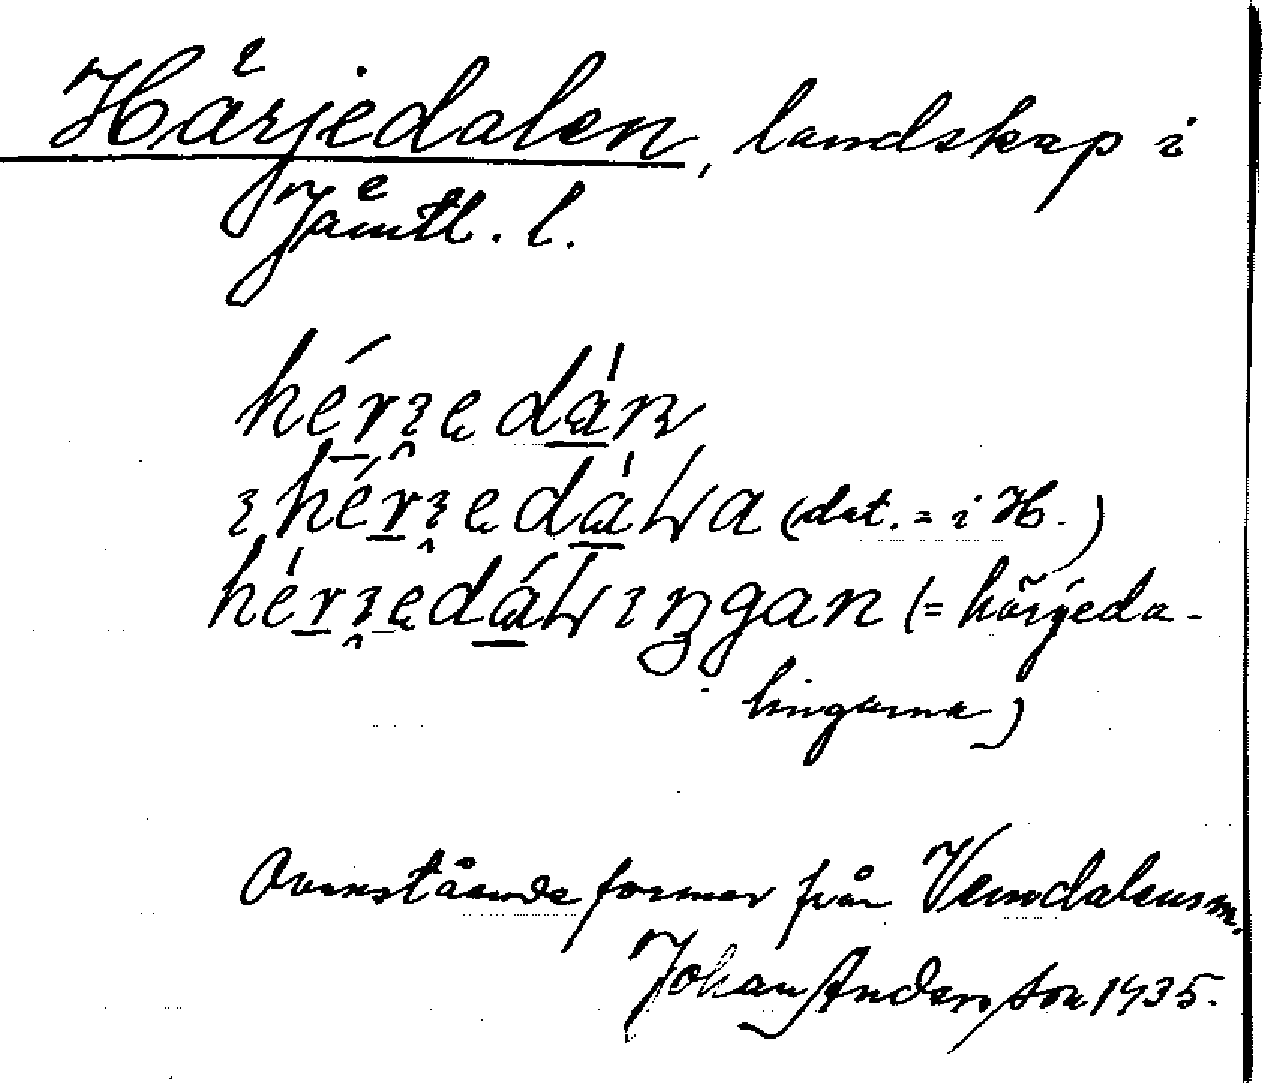 Härjedalen, landskap i
Jämtl. l.
hérɪedáɴ
ɪ hérɪedáꞎa (dat. = i H.)
hérɪedáꞎɪŋgan (= härjeda-
lingarna)
Ovanstående former från Vemdalens sn.
Johan Anderson 1935.